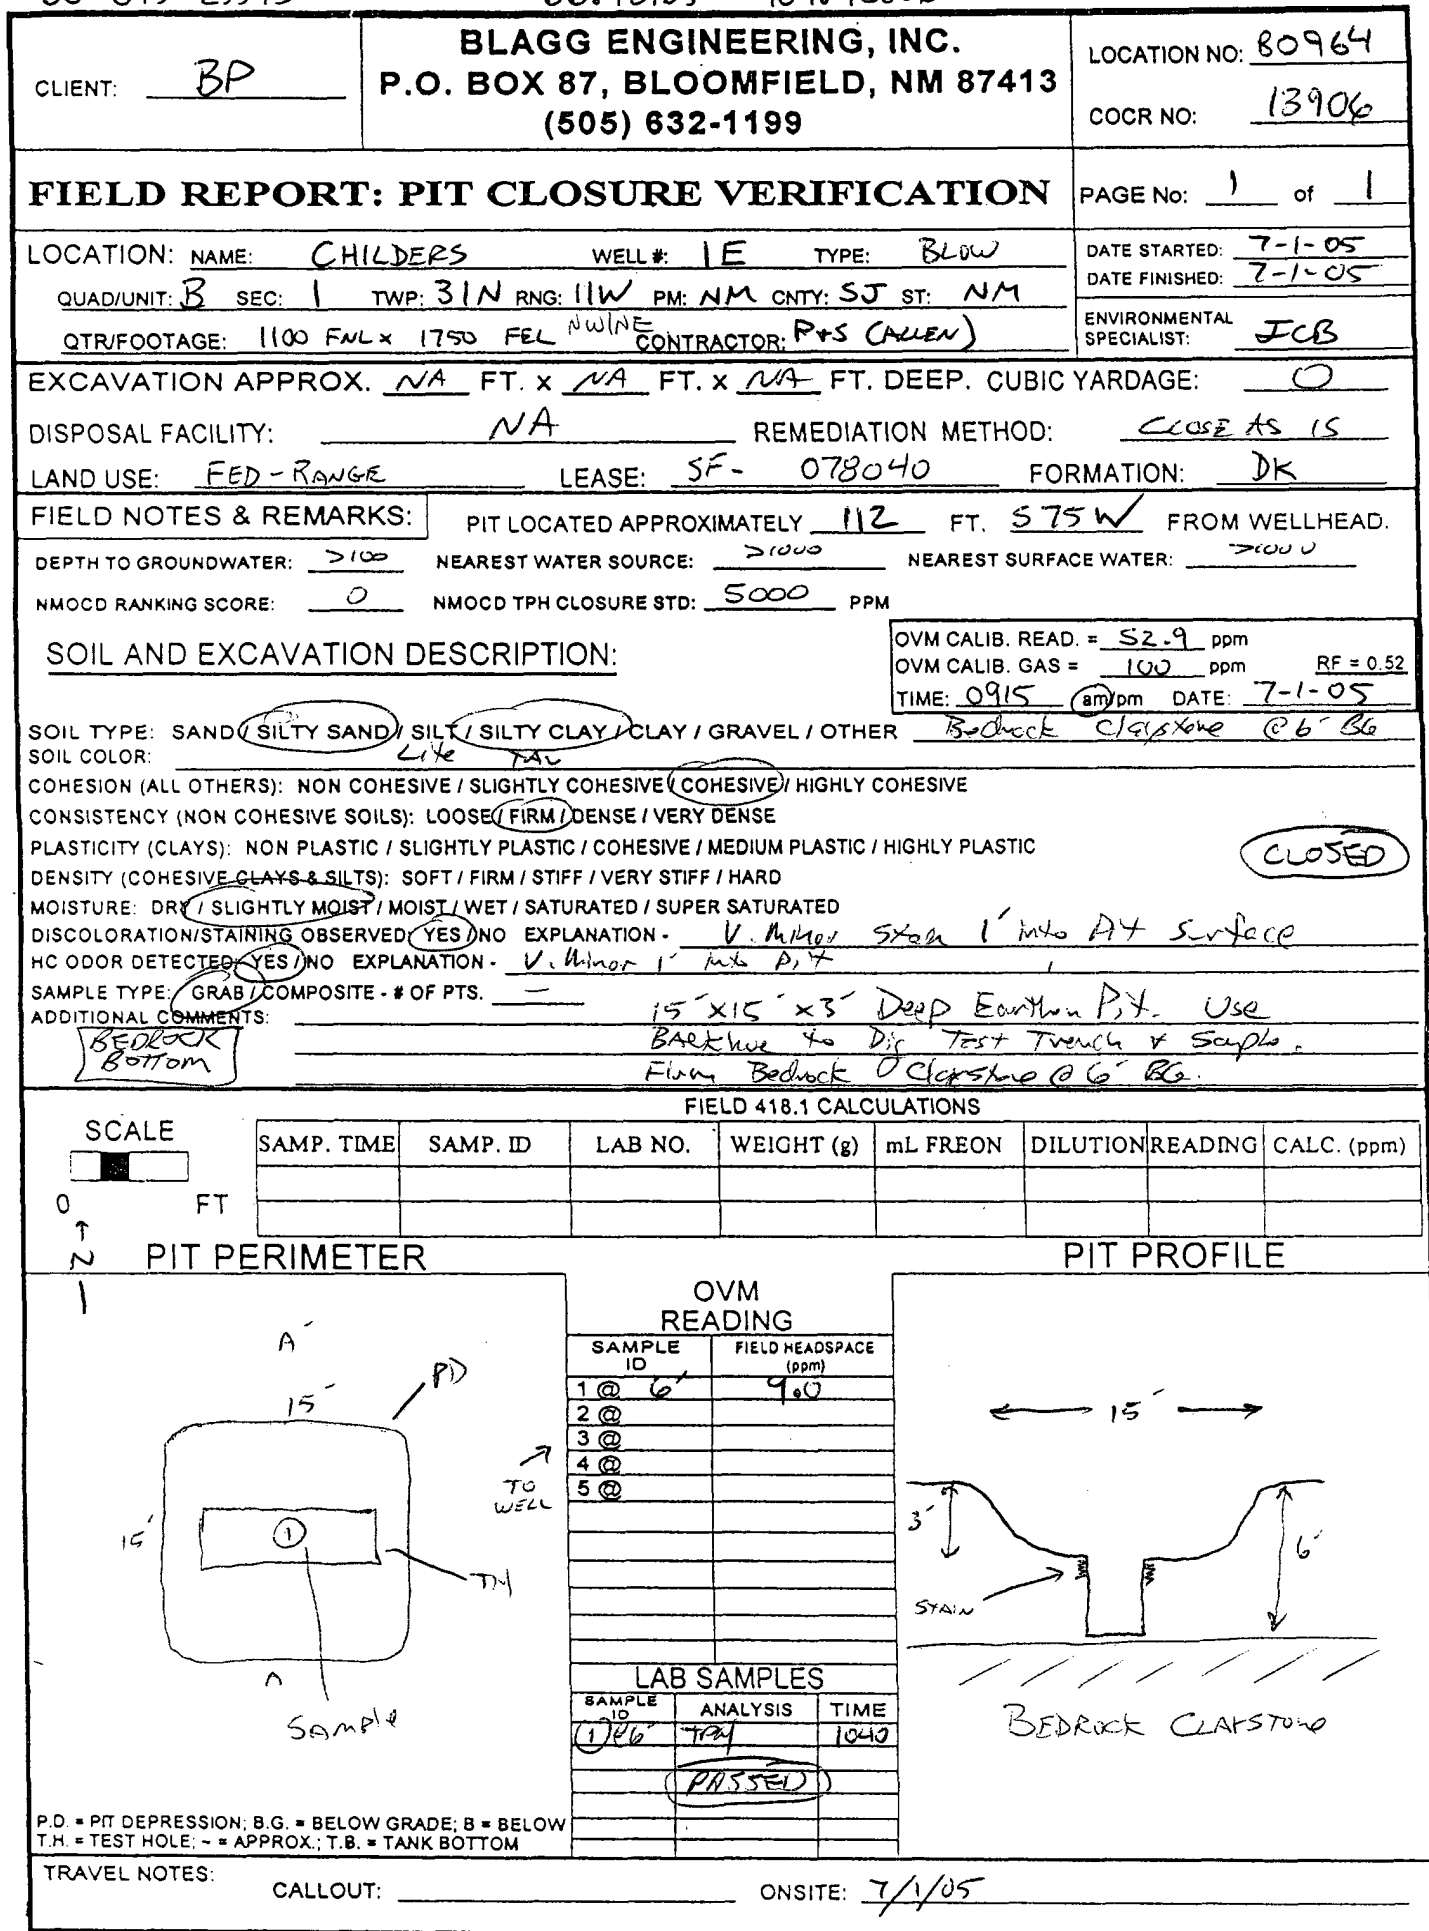 BLAGG ENGINEERING, INC.
P.O. BOX 87, BLOOMFIELD, NM 87413
(505) 632-1199
CLIENT: BP
LOCATION NO: 80964
COCR NO: 13906
FIELD REPORT: PIT CLOSURE VERIFICATION
PAGE No: 1 of 1
LOCATION: NAME: CHILDERS WELL #: 1E TYPE: BLOW
DATE STARTED: 7-1-05
DATE FINISHED: 7-1-05
QUAD/UNIT: B SEC: 1 TWP: 31N RNG: 11W PM: NM CNTY: SJ ST: NM
QTR/FOOTAGE: 1100 FNL x 1750 FEL NW/NE CONTRACTOR: P+S (ALLEN)
ENVIRONMENTAL
SPECIALIST: JCB
EXCAVATION APPROX. NA FT. x NA FT. x NA FT. DEEP. CUBIC YARDAGE: 0
DISPOSAL FACILITY: NA REMEDIATION METHOD: CLOSE AS IS
LAND USE: FED - RANGE LEASE: SF- 078040 FORMATION: DK
FIELD NOTES & REMARKS: PIT LOCATED APPROXIMATELY 112 FT. S75W FROM WELLHEAD.
DEPTH TO GROUNDWATER: >100 NEAREST WATER SOURCE: >1000 NEAREST SURFACE WATER: >1000
NMOCD RANKING SCORE: 0 NMOCD TPH CLOSURE STD: 5000 PPM
SOIL AND EXCAVATION DESCRIPTION:
OVM CALIB. READ. = 52.9 ppm
OVM CALIB. GAS = 100 ppm RF = 0.52
TIME: 0915 am/pm DATE: 7-1-05
SOIL TYPE: SAND / SILTY SAND / SILT / SILTY CLAY / CLAY / GRAVEL / OTHER Bedrock Claystone @ 6' BG
SOIL COLOR: Lite TAN
COHESION (ALL OTHERS): NON COHESIVE / SLIGHTLY COHESIVE / COHESIVE / HIGHLY COHESIVE
CONSISTENCY (NON COHESIVE SOILS): LOOSE / FIRM / DENSE / VERY DENSE
PLASTICITY (CLAYS): NON PLASTIC / SLIGHTLY PLASTIC / COHESIVE / MEDIUM PLASTIC / HIGHLY PLASTIC
CLOSED
DENSITY (COHESIVE CLAYS & SILTS): SOFT / FIRM / STIFF / VERY STIFF / HARD
MOISTURE: DRY / SLIGHTLY MOIST / MOIST / WET / SATURATED / SUPER SATURATED
DISCOLORATION/STAINING OBSERVED: YES / NO EXPLANATION - V. Minor Stain 1' into Pit Surface
HC ODOR DETECTED: YES / NO EXPLANATION - V. Minor 1' into Pit
SAMPLE TYPE: GRAB / COMPOSITE - # OF PTS. —
ADDITIONAL COMMENTS: 15' x 15' x 3' Deep Earthen Pit. Use
Backhoe to Dig Test Trench & Sample.
Firm Bedrock Claystone @ 6' BG.
BEDROCK
BOTTOM
FIELD 418.1 CALCULATIONS
SCALE
0 FT
SAMP. TIME SAMP. ID LAB NO. WEIGHT (g) mL FREON DILUTION READING CALC. (ppm)
N
PIT PERIMETER
PIT PROFILE
OVM
READING
SAMPLE ID FIELD HEADSPACE (ppm)
1 @ 6' 9.0
2 @
3 @
4 @
5 @
A'
15'
PD
TO
WELL
15'
1
TH
A
Sample
15'
3'
6'
STAIN
BEDROCK CLAYSTONE
LAB SAMPLES
SAMPLE ID ANALYSIS TIME
1 @ 6' TPH 1040
PASSED
P.D. = PIT DEPRESSION; B.G. = BELOW GRADE; B = BELOW
T.H. = TEST HOLE; ~ = APPROX.; T.B. = TANK BOTTOM
TRAVEL NOTES:
CALLOUT: ONSITE: 7/1/05